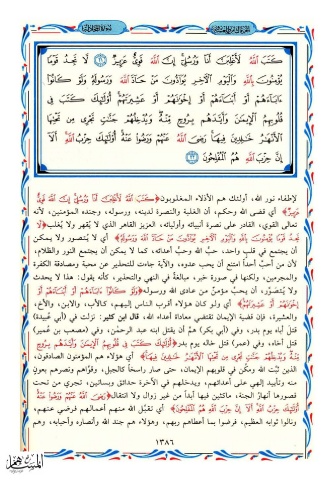 كَتَبَ اللَّهُ لَأَغْلِبَنَّ أَنَا وَرُسُلِي إِنَّ اللَّهَ قَوِيٌّ عَزِيزٌ ﴿٢١﴾ لَّا تَجِدُ قَوْمًا
يُؤْمِنُونَ بِاللَّهِ وَالْيَوْمِ الْآخِرِ يُوَادُّونَ مَنْ حَادَّ اللَّهَ وَرَسُولَهُ وَلَوْ كَانُوا
ءَابَاءَهُمْ أَوْ أَبْنَاءَهُمْ أَوْ إِخْوَانَهُمْ أَوْ عَشِيرَتَهُمْ أُولَٰئِكَ كَتَبَ فِي
قُلُوبِهِمُ الْإِيمَانَ وَأَيَّدَهُم بِرُوحٍ مِّنْهُ وَيُدْخِلُهُمْ جَنَّاتٍ تَجْرِي مِن تَحْتِهَا
الْأَنْهَارُ خَالِدِينَ فِيهَا رَضِيَ اللَّهُ عَنْهُمْ وَرَضُوا عَنْهُ أُولَٰئِكَ حِزْبُ اللَّهِ أَلَا
إِنَّ حِزْبَ اللَّهِ هُمُ الْمُفْلِحُونَ ﴿٢٢﴾
لإطفاء نور الله، أولئك هم الأذلاء المغلوبون ﴿كَتَبَ اللَّهُ لَأَغْلِبَنَّ أَنَا وَرُسُلِي إِنَّ اللَّهَ قَوِيٌّ
عَزِيزٌ﴾ أي قضى الله وحكم، أن الغلبة والنصرة لدينه، ورسوله، وجنده المؤمنين، لأنه
تعالى القوي، القادر على نصرة أنبيائه وأوليائه، العزيز القاهر الذي لا يُقهر ولا يُغلب ﴿لَا
تَجِدُ قَوْمًا يُؤْمِنُونَ بِاللَّهِ وَالْيَوْمِ الْآخِرِ يُوَادُّونَ مَنْ حَادَّ اللَّهَ وَرَسُولَهُ﴾ أي لا يُتصور ولا يمكن
أن يجتمع في قلبٍ واحد، حبُّ الله وحبُّ أعدائه، كما لا يمكن أن يجتمع النور والظلام،
لأن من أحبَّ أحداً امتنع أن يحب عدوه، والآية جاءت للتحذير عن محبة ومصادقة الكفرة
والمجرمين، ولكنها في صورة خبر، مبالغةً في النهي والتحذير، كأنه يقول: هذا لا يحدث
ولا يُتصوَّر، أن يحبَّ مؤمنٌ من عادى الله ورسوله ﴿وَلَوْ كَانُوا ءَابَاءَهُمْ أَوْ أَبْنَاءَهُمْ أَوْ
إِخْوَانَهُمْ أَوْ عَشِيرَتَهُمْ﴾ أي ولو كان هؤلاء أقرب الناس إليهم، كالأب، والابن، والأخ،
والعشيرة، فإن قضية الإيمان تقتضي معاداة أعداء الله، قال ابن كثير: نزلت في (أبي عُبيدة)
قتل أباه يوم بدر، وفي (أبي بكر) همَّ أن يقتل ابنه عبد الرحمٰن، وفي (مصعب بن عُمير)
قتل أخاه، وفي (عمر) قتل خاله يوم بدر ﴿أُولَٰئِكَ كَتَبَ فِي قُلُوبِهِمُ الْإِيمَانَ وَأَيَّدَهُم بِرُوحٍ
مِّنْهُ وَيُدْخِلُهُمْ جَنَّاتٍ تَجْرِي مِن تَحْتِهَا الْأَنْهَارُ خَالِدِينَ فِيهَا﴾ أي هؤلاء هم المؤمنون الصادقون،
الذين ثبَّت الله ومكَّن في قلوبهم الإيمان، حتى صار راسخاً كالجبل، وقوَّاهم ونصرهم بعونٍ
منه وتأييد إلهي على أعدائهم، ويدخلهم في الآخرة حدائق وبساتين، تجري من تحت
قصورها أنهارُ الجنة، ماكثين فيها أبداً من غير زوالٍ ولا انتقال ﴿رَضِيَ اللَّهُ عَنْهُمْ وَرَضُوا عَنْهُ
أُولَٰئِكَ حِزْبُ اللَّهِ أَلَا إِنَّ حِزْبَ اللَّهِ هُمُ الْمُفْلِحُونَ﴾ أي تقبَّل الله منهم أعمالهم فرضي عنهم،
ونالوا ثوابه العظيم، فرضوا بما أعطاهم ربهم، وهؤلاء هم جند الله وأنصاره وأحبابه، وهم
١٣٨٦